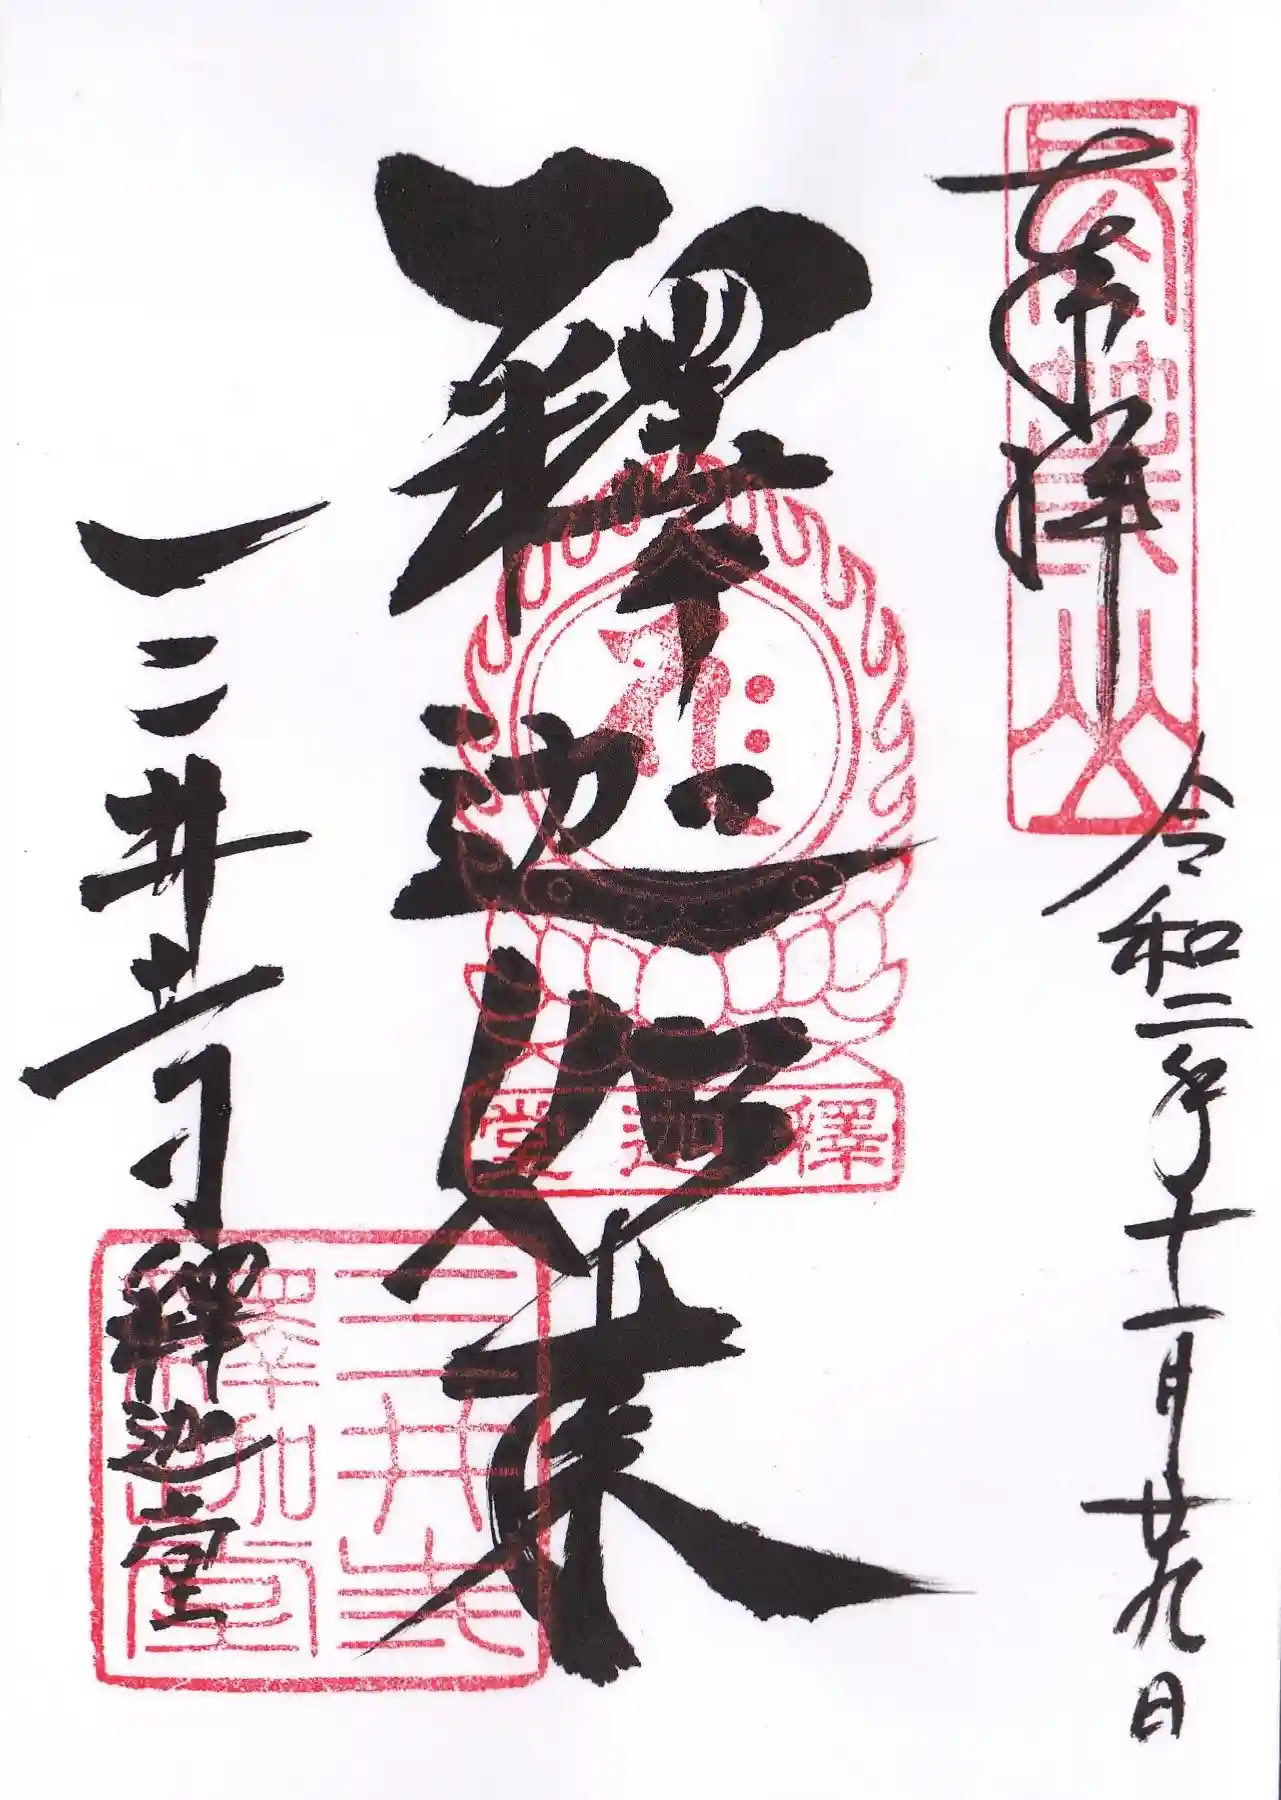 奉拝
令和二年十一月廿九日
釋迦如来
釋迦堂
三井寺釋迦堂
三井寺
釋迦堂